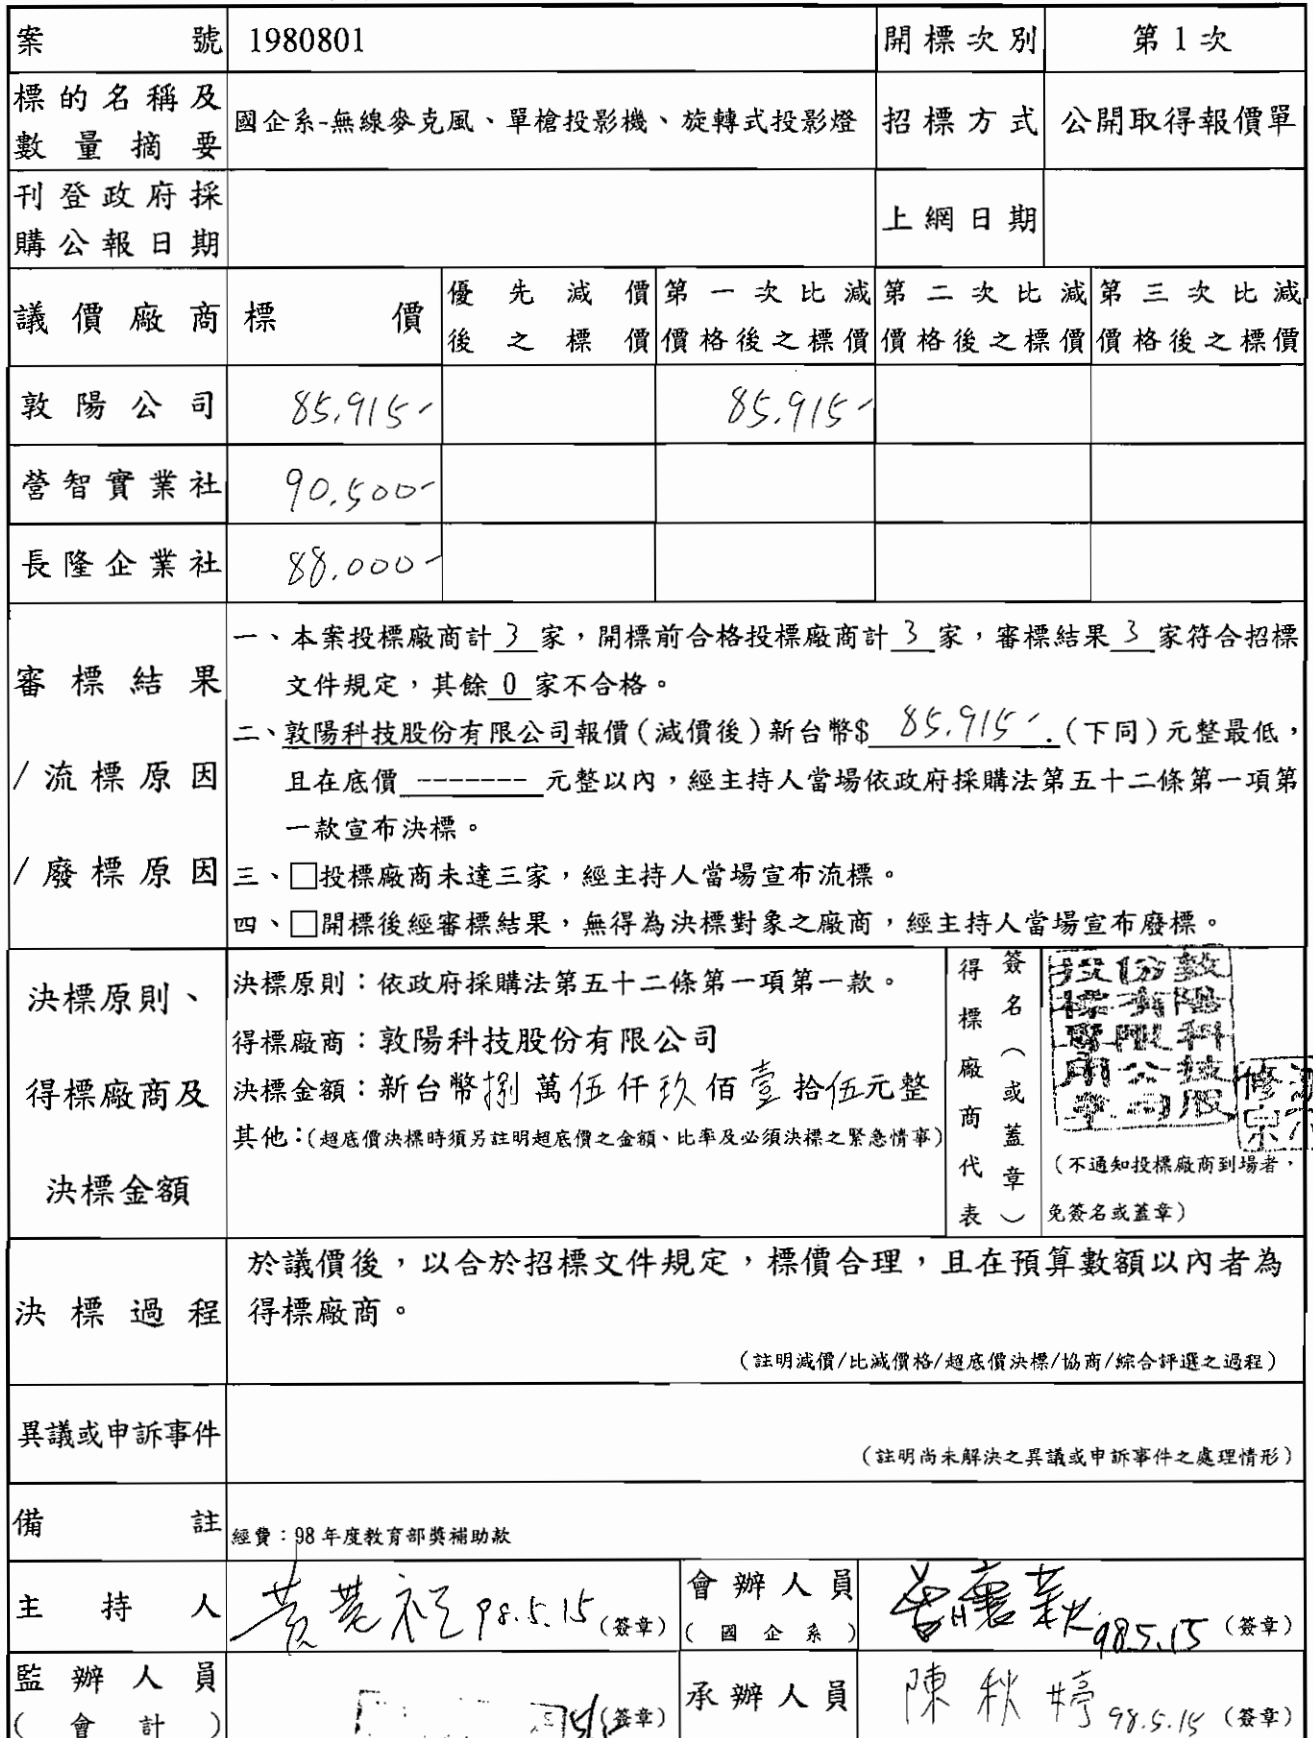 案號 1980801 開標次別 第1次
標的名稱及數量摘要 國企系-無線麥克風、單槍投影機、旋轉式投影燈 招標方式 公開取得報價單
刊登政府採購公報日期 上網日期
議價廠商 標價 優先減價後之標價 第一次比減價格後之標價 第二次比減價格後之標價 第三次比減價格後之標價
敦陽公司 85,915- 85,915-
營智實業社 90,500-
長隆企業社 88,000-
審標結果/流標原因/廢標原因
一、本案投標廠商計 3 家，開標前合格投標廠商計 3 家，審標結果 3 家符合招標
文件規定，其餘 0 家不合格。
二、敦陽科技股份有限公司報價(減價後)新台幣$ 85,915-.(下同)元整最低，
且在底價 ------- 元整以內，經主持人當場依政府採購法第五十二條第一項第
一款宣布決標。
三、□投標廠商未達三家，經主持人當場宣布流標。
四、□開標後經審標結果，無得為決標對象之廠商，經主持人當場宣布廢標。
決標原則、得標廠商及決標金額
決標原則：依政府採購法第五十二條第一項第一款。
得標廠商：敦陽科技股份有限公司
決標金額：新台幣捌萬伍仟玖佰壹拾伍元整
其他：(超底價決標時須另註明超底價之金額、比率及必須決標之緊急情事)
得標廠商代表簽名(或蓋章)
敦陽科技股份有限公司投標專用章
(不通知投標廠商到場者，
免簽名或蓋章)
決標過程
於議價後，以合於招標文件規定，標價合理，且在預算數額以內者為
得標廠商。
(註明減價/比減價格/超底價決標/協商/綜合評選之過程)
異議或申訴事件
(註明尚未解決之異議或申訴事件之處理情形)
備註 經費：98年度教育部獎補助款
主持人 98.5.15 (簽章) 會辦人員(國企系) 98.5.15 (簽章)
監辦人員(會計) (簽章) 承辦人員 陳秋婷 98.5.15 (簽章)